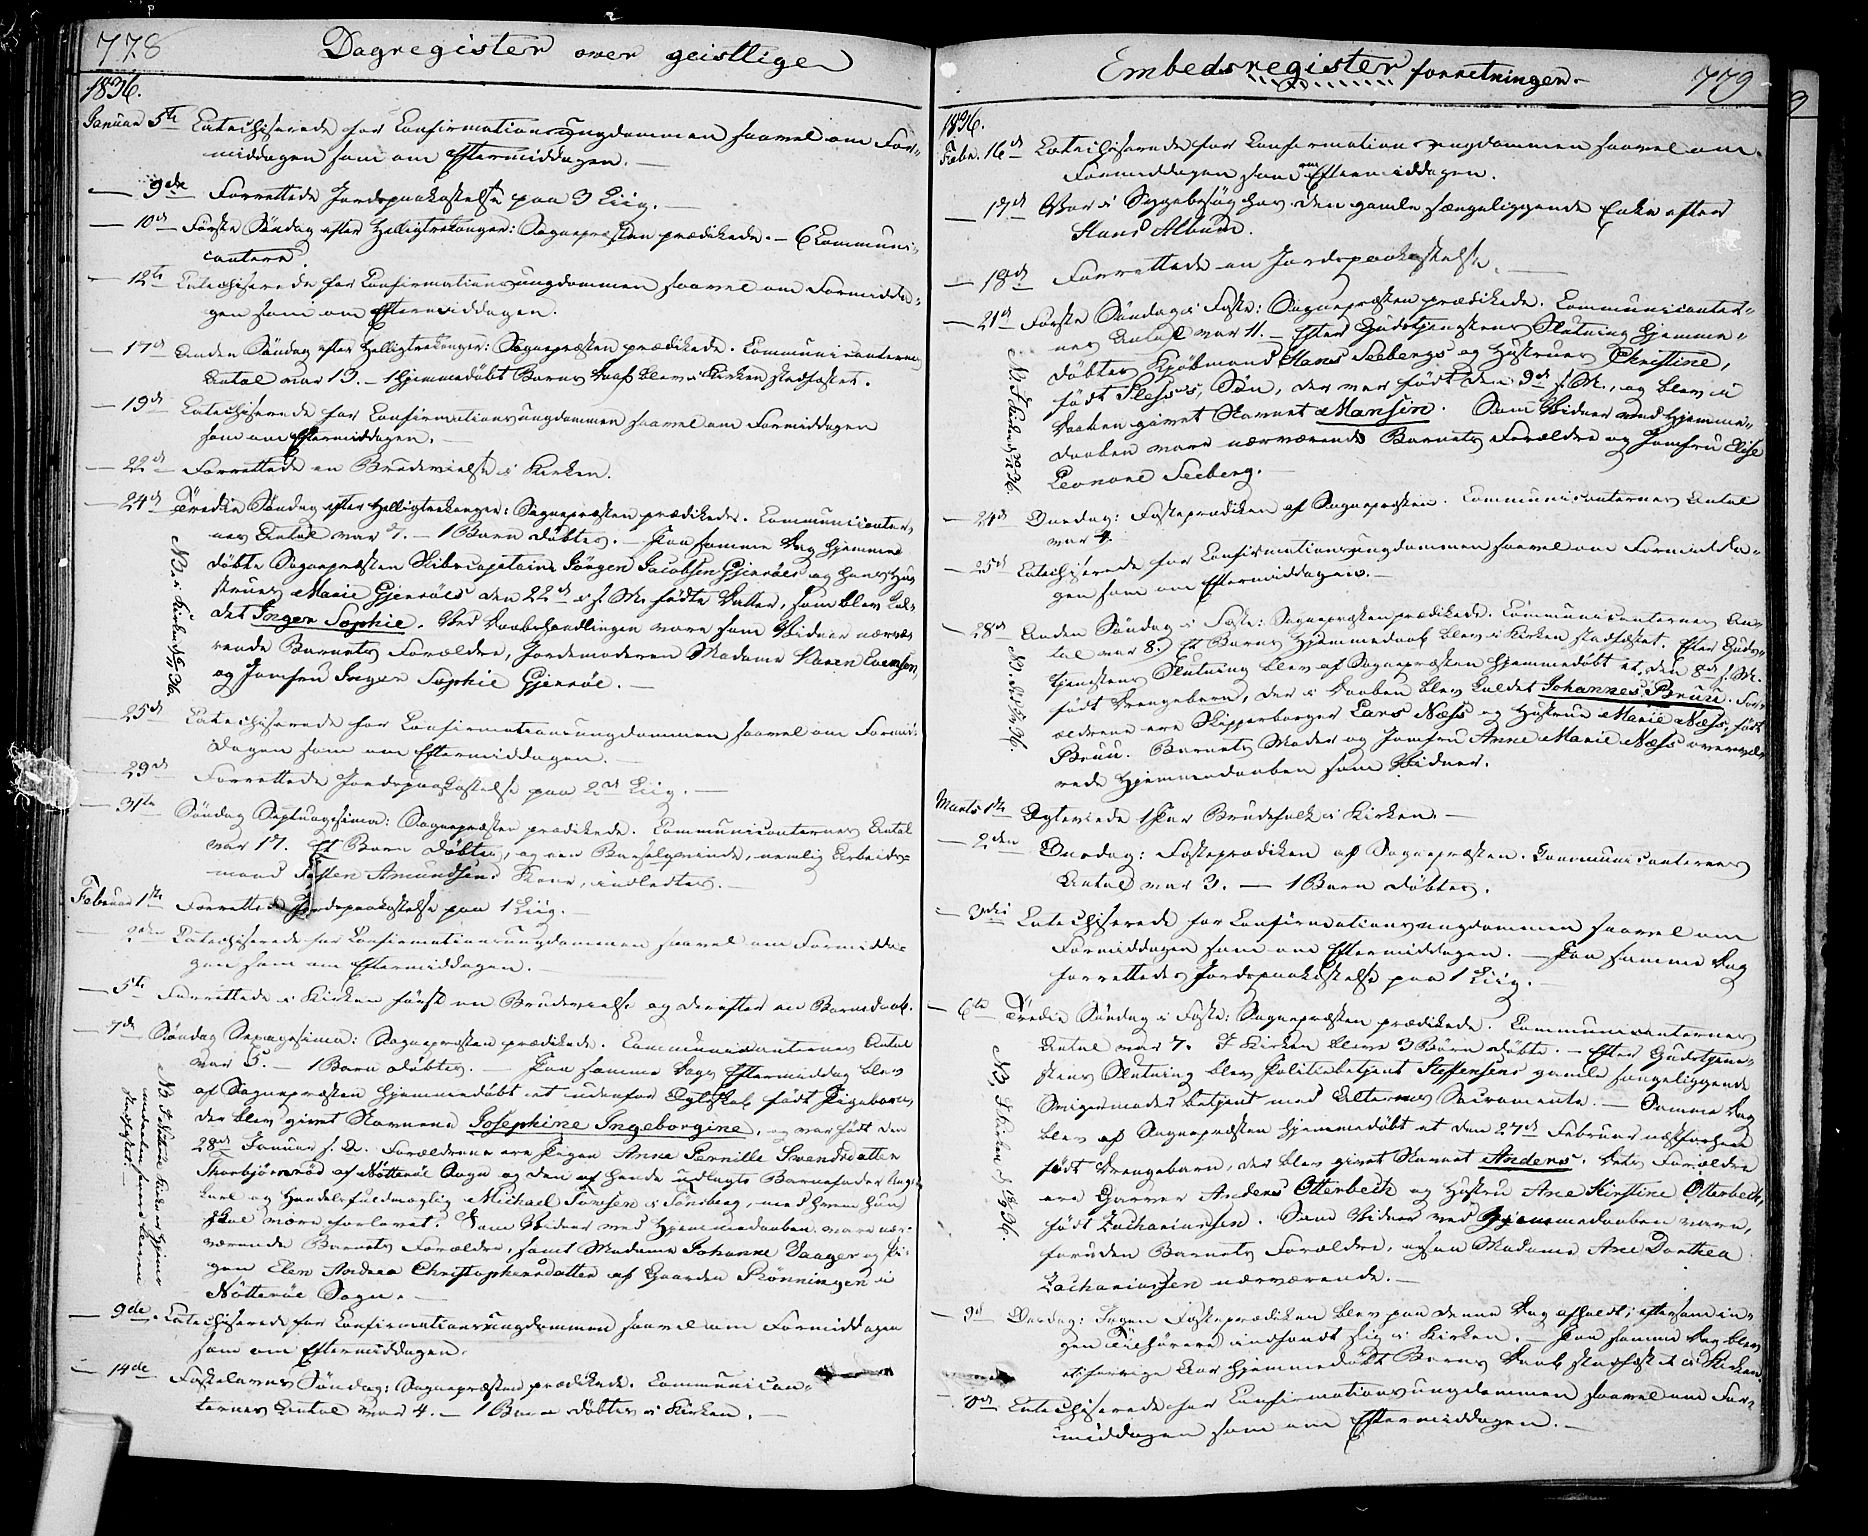 778
Dagregister over geistlige
1836.
Januar 5te Catechiserede for Confirmationsungdommen saavel om For-
middagen som om Eftermiddagen. —
— 9de Forrettede Jordspaakastelse paa 3 Liig. —
— 10de Første Søndag efter Helligtrekonger: Sognepræsten prædikede. — 6 Communi-
cantere.
— 12te Catechiserede for Confirmationsungdommen saavel om Formidda-
gen som om Eftermiddagen.
— 17de Anden Søndag efter Helligtrekonger: Sognepræsten prædikede. Communicanternes
Antal var 13. — 1 Hjemmedøbt Barns Daab blev i Kirken stadfæstet.
— 19de Catechiserede for Confirmationsungdommen saavel om Formiddagen
som om Eftermiddagen. —
— 22de Forrettede en Brudevielse i Kirken.
— 24de Tredie Søndag efter Helligtrekonger: Sognepræsten prædikede. Communicanter-
nes Antal var 7. — 1 Barn døbtes. — Paa samme Dag hjemme-
døbte Sognepræsten Skibscapitain Jørgen Jacobsen Gjerøes og hans Hu-
strues Marie Gjerøes den 22de i f. M. fødte Datter, som blev kal-
det Inger Sophie. Ved Daabshandlingen vare som Vidner nærvæ-
rende Barnets Forældre, Jordemoderen Madame Karen Evensen,
og Jomfru Inger Sophie Gjerøe. —
— 25de Catechiserede for Confirmationsungdommen saavel om Formid-
dagen som om Eftermiddagen. —
— 29de Forrettede Jordspaakastelse paa 2de Liig. —
— 31te Søndag Septuagesima: Sognepræsten prædikede. Communicanternes Antal
var 17. Et Barn døbtes, og en Barselqvinde, nemlig Arbeids-
mand Amundsens Kone, indledtes. —
Februar 1ste Forrettede Jordspaakastelse paa 1 Liig. —
Catechiserede for Confirmationsungdommen saavel om Formidda-
gen som om Eftermiddagen. —
— 5te Forrettede i Kirken først en Brudevielse og derefter en Barnedaab.
— 7de Søndag Sexagesima: Sognepræsten prædikede. Communicanternes Antal
var 5. — 1 Barn døbtes. — Paa samme Dags Eftermiddag blev
af Sognepræsten hjemmedøbt et udenfor Ægteskab født Pigebarn,
der blev givet Navnene Josephine Ingeborgine, og var født den
28de Januar f. A. Forældrene ere Pigen Anne Pernille Svendsdatter
Thorbjørnrød af Nøtterøe Sogn og den af hende udlagte Barnefader Ung-
karl og Handelsfuldmægtig Michael Tønsen i Tønsberg, med hvem hun
skal være forlovet. Som Vidner ved Hjemmedaaben vare nær-
værende Barnets Forældre, samt Madame Johanne Saager og Pi-
gen Elen Andrea Christophersdatter af Gaarden Rønningen i
Nøtterøe Sogn. —
— 9de Catechiserede for Confirmationsungdommen saavel om Formiddagen
som om Eftermiddagen.
— 14de Fastelavns Søndag: Sognepræsten prædikede. Communican-
ternes Antal var 4. — 1 Barn døbtes i Kirken. —
Embedsregister forretningen. —
779
1836.
Febr. 16de Catechiserede for Confirmationsungdommen saavel om
Formiddagen som om Eftermiddagen.
— 17de Var i Sygebesøg hos den gamle sængeliggende Enke efter
Hans Album.
— 18de Forrettede en Jordspaakastelse. —
— 21de Første Søndag i Faste: Sognepræsten prædikede. Communicanter-
nes Antal var 11. — Efter Gudstjenestens Slutning hjemme-
døbtes Kjøbmand Hans Seebergs og Hustrues Christine,
født Plesses, Søn, der var født den 9de f. M., og blev i
Daaben givet Navnet Mansin. Som Vidner ved Hjemme-
daaben vare nærværende Barnets Forældre og Jomfru Elise
Leonore Seeberg. —
— 24de Onsdag: Fasteprædiken af Sognepræsten. Communicanternes Antal
var 4.
— 25de Catechiserede for Confirmationsungdommen saavel om Formidda-
gen som om Eftermiddagen. —
— 28de Anden Søndag i Faste: Sognepræsten prædikede. Communicanternes An-
tal var 8. Et Barns Hjemmedaab blev i Kirken stadfæstet. Efter Guds-
tjenestens Slutning blev af Sognepræsten hjemmedøbt et, den 8de f. M.
født Drengebarn, der i Daaben blev kaldet Johannes Bruu. For-
ældrene ere Skipperborger Lars Næss og Hustrue Marie Næss, født
Bruu. Barnets Moder og Jomfru Anne Marie Næss overvæ-
rede Hjemmedaaben som Vidner.
Marts 1ste Ægteviede 1 Par Brudefolk i Kirken. —
— 2den Onsdag: Fasteprædiken af Sognepræsten. Communicanternes
Antal var 3. — 1 Barn døbtes.
— 3die Catechiserede for Confirmationsungdommen saavel om
Formiddagen som om Eftermiddagen. — Paa samme Dag
forrettedes Jordspaakastelse paa 1 Liig. —
— 6te Tredie Søndag i Faste: Sognepræsten prædikede. Communicanternes
Antal var 7. I Kirken bleve 3 Børn døbte. — Efter Gudstjene-
stens Slutning blev Politiebetjent Steffensens gamle sængeliggende
Svigermoder betjent med Alterens Sacramente. — Samme Dag
blev af Sognepræsten hjemmedøbt et den 27de Februar næstforhen
født Drengebarn, der blev givet Navnet Anders. Dets Forældre
ere Garver Anders Otterbech og Hustru Ane Kirstine Otterbech,
født Zachariassen. Som Vidner ved Hjemmedaaben vare,
foruden Barnets Forældre, ogsaa Madame Ane Dorthea
Zachariassen nærværende. —
— 9de Onsdag: Ingen Fasteprædiken blev paa denne Dag afholdt, eftersom in-
gen Tilhørere indfandt sig i Kirken. — Paa samme Dag blev
et forrige Aar hjemmedøbt Barns Daab stadfæstet i Kirken.
Catechiserede for Confirmationsungdommen saavel om For-
middagen som om Eftermiddagen. —